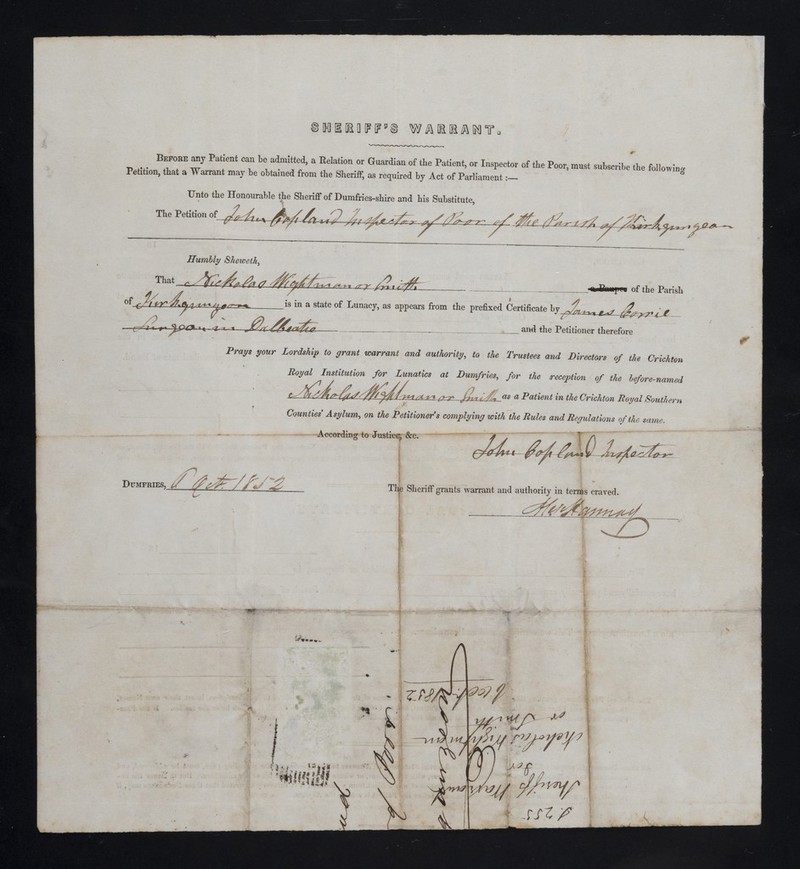 SHERIFF'S WARRANT.
BEFORE any Patient can be admitted, a Relation or Guardian of the Patient, or Inspector of the Poor, must subscribe the following
Petition, that a Warrant may be obtained from the Sheriff, as required by Act of Parliament :—
Unto the Honourable the Sheriff of Dumfries-shire and his Substitute,
The Petition of John Copland Inspector of Poor of the Parish of Kirkgunzeon
Humbly Sheweth,
That Nicholas Wightman or Smith a Pauper of the Parish
of Kirkgunzeon is in a state of Lunacy, as appears from the prefixed Certificate by James Corrie
Surgeon in Dalbeatie and the Petitioner therefore
Prays your Lordship to grant warrant and authority, to the Trustees and Directors of the Crichton
Royal Institution for Lunatics at Dumfries, for the reception of the before-named
Nicholas Wightman or Smith as a Patient in the Crichton Royal Southern
Counties' Asylum, on the Petitioner's complying with the Rules and Regulations of the same.
According to Justice, &c.
John Copland Inspector
DUMFRIES, 6 Oct. 1852
The Sheriff grants warrant and authority in terms craved.
Hannay
255
Sheriff's Warrant
for
Nicholas Wightman
or Smith
6 Oct. 1852